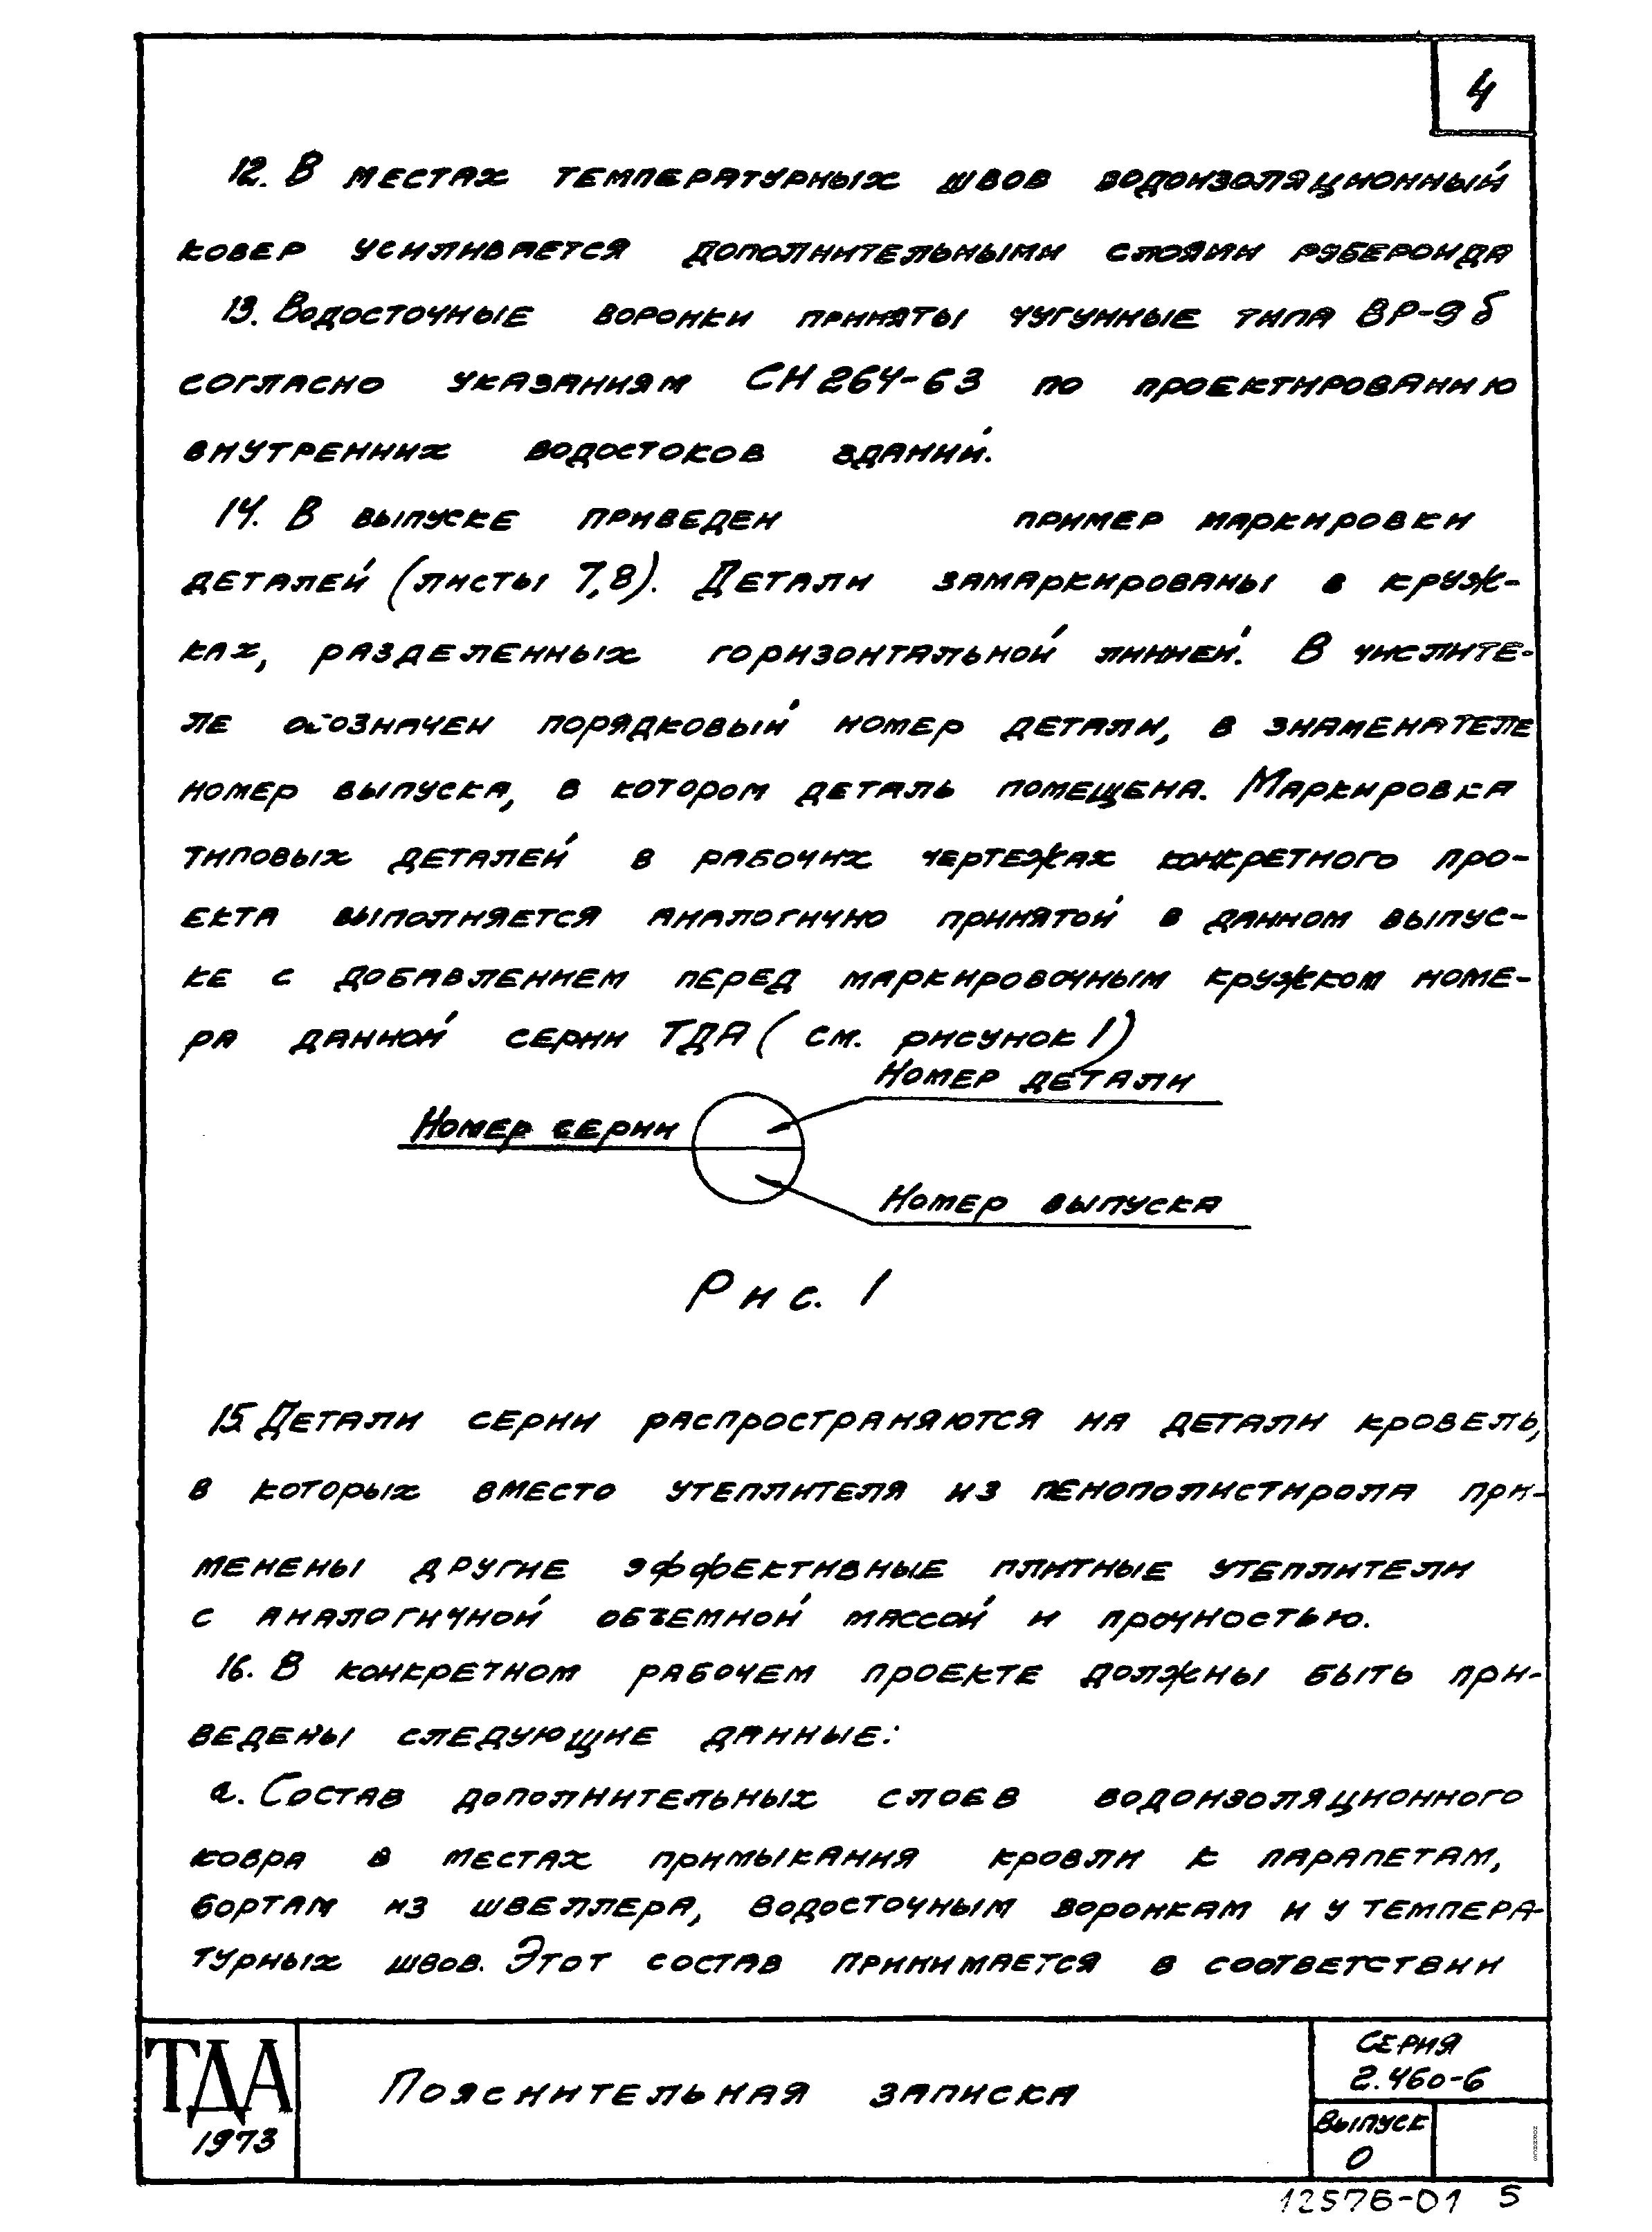 4
12. В местах температурных швов водоизоляционный
ковер усиливается дополнительными слоями рубероида
13. Водосточные воронки приняты чугунные типа ВР-9б
согласно указаниям СН 264-63 по проектированию
внутренних водостоков зданий.
14. В выпуске приведен пример маркировки
деталей (листы 7,8). Детали замаркированы в круж-
ках, разделенных горизонтальной линией. В числите-
ле обозначен порядковый номер детали, в знаменателе
номер выпуска, в котором деталь помещена. Маркировка
типовых деталей в рабочих чертежах конкретного про-
екта выполняется аналогично принятой в данном выпус-
ке с добавлением перед маркировочным кружком номе-
ра данной серии ТДА (см. рисунок 1)
Номер детали
Номер серии
Номер выпуска
Рис. 1
15 Детали серии распространяются на детали кровель,
в которых вместо утеплителя из пенополистирола при-
менены другие эффективные плитные утеплители
с аналогичной объемной массой и прочностью.
16. В конкретном рабочем проекте должны быть при-
ведены следующие данные:
а. Состав дополнительных слоев водоизоляционного
ковра в местах примыкания кровли к парапетам,
бортам из швеллера, водосточным воронкам и у темпера-
турных швов. Этот состав принимается в соответствии
ТДА
1973
Пояснительная записка
Серия
2.460-6
Выпуск
0
12576-01 5